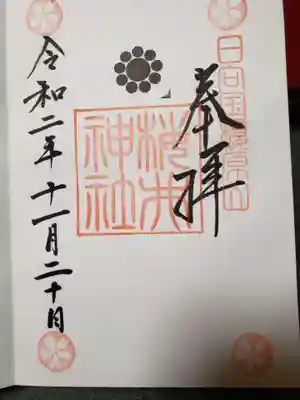 奉拝
日向国
神社
令和二年十一月二十日